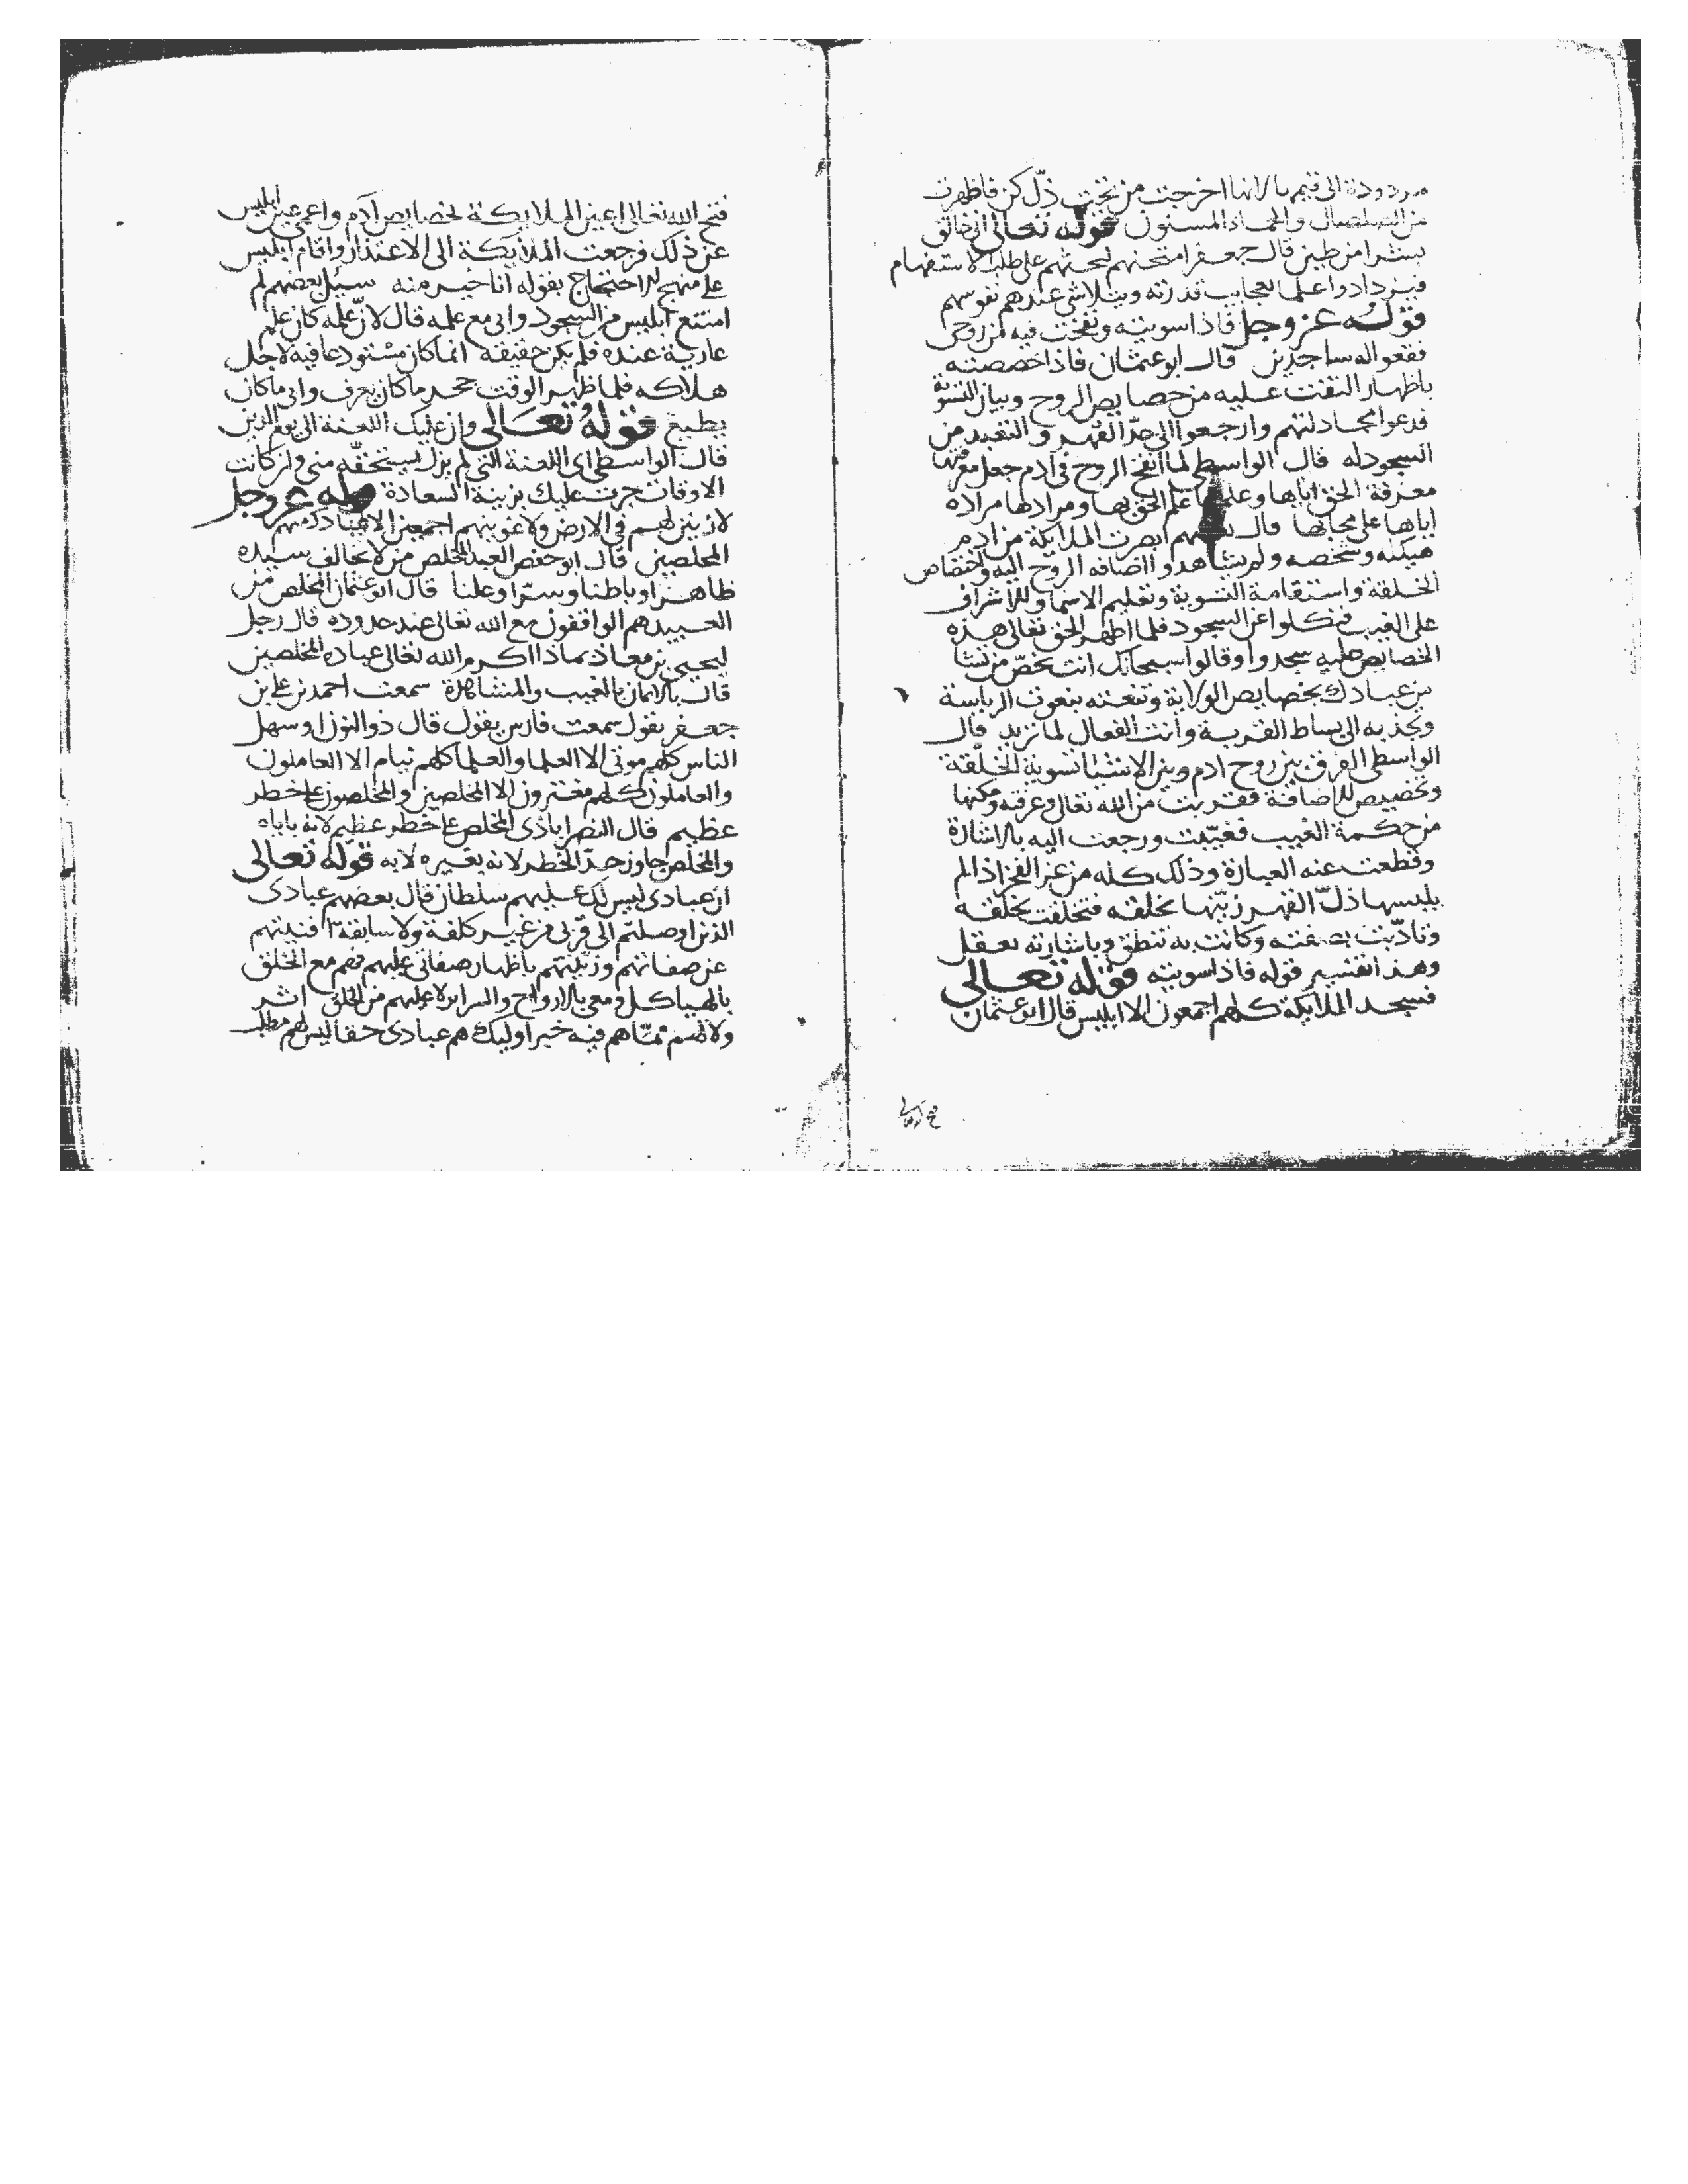 مردودة الى قيم بالانها اخرجت من تحت ذلّ كن فاظهرت
من الصلصال والحماء المسنون قوله تعالى انى خالق
بشرا من طين قال جعفر امتحنهم ليحثهم على طلب الاستفهام
فيزدادوا علما بعجايب قدرته ويتلاشى عندهم نفوسهم
قوله عز وجل فاذا سويته ونفخت فيه من روحى
فقعوا له ساجدين قال ابو عثمان فاذا خصصته
باظهار النفث عليه من خصايص الروح وبيان التسوية
فدعوا مجادلتهم وارجعوا الى حدّ القهر والتعبد من
السجود له قال الواسطى لما نفخ الروح فى ادم جعل معرفتها
معرفة الحق اياها وعلمها علم الحق بها ومرادها مراده
اياها على محابها قال بعضهم ابصرت الملايكة من ادم
هيكله وشخصه ولم يشاهدوا اضافه الروح اليه واختصاص
الخلقة واستقامة التسوية وتعليم الاسما وللاشراف
على الغيب فنكلوا عن السجود فلما اظهر الحق تعالى هذه
الخصايص عليه سجدوا وقالوا سبحانك انت تخصّ من تشا
من عبادك بخصايص الولاية وتنعته بنعوت الرياسة
وتجذبه الى بساط القربة وانت الفعال لما تريد قال
الواسطى الفرق بين روح ادم وبين الاشيا تسوية الخلقة
وتخصيص للاضافة فقربت من الله تعالى وعرفته ومكنها
من حكمة الغيب فغيّبت ورجعت اليه بالاشارة
وقطعت عنه العبارة وذلك كله من عز الفخر اذ الم
يلبسها ذلّ القهر زيّنها بخلقه فتخلقت بخلقه
وتادّبت بصفته وكانت به تنطق وباشارته تعقل
وهذا تفسير قوله فاذا سويته قوله تعالى
فسجد الملايكة كلهم اجمعون الا ابليس قال ابو عثمان
فتح الله تعالى اعين الملايكة لخصايص آدم واعمى عين ابليس
عن ذلك فرجعت الملايكة الى الاعتذار واقام ابليس
على منهج للاحتجاج بقوله انا خير منه سيل بعضهم لم
امتنع ابليس من السجود وابى مع علمه قال لانّ علمه كان علم
عارية عنده فلم يكن حقيقة انما كان مستودعا فيه لاجل
هلاكه فلما ظهر الوقت جحد ما كان يعرف وابى ما كان
يطيع قوله تعالى وان عليك اللعنة الى يوم الدين
قال الواسطى اى اللعنة التى لم يزل يستحقّه منى ولن كانت
الاوقات جرت عليك بزينة السعادة قوله عز وجل
لازينن لهم فى الارض ولاغوينهم اجمعين الا عبادك منهم
المخلصين قال ابو حفص العبد المخلص من لا يخالف سيده
ظاهرا وباطنا وسرّا وعلنا قال ابو عثمان المخلص من
العبيد هم الواقفون مع الله تعالى عند حدوده قال رجل
ليحيى بن معاذ بماذا اكرم الله تعالى عباده المخلصين
قال بالايمان بالغيب والمشاهدة سمعت احمد بن على بن
جعفر يقول سمعت فارس يقول قال ذو النون او سهل
الناس كلهم موتى الا العلما والعلما كلهم نيام الا العاملون
والعاملون كلهم مغترون الا المخلصين والمخلصون على خطر
عظيم قال النصراباذى المخلص على خطر عظيم لانه باياه
والمخلص جاوز حدّ الخطر لانه بغيره لا به قوله تعالى
ان عبادى ليس لك عليهم سلطان قال بعضهم عبادى
الذين اوصلتهم الى قربى من غير كلفة ولا سابقة افنيتهم
عن صفاتهم وزينتهم باظهار صفاتى عليهم فهم مع الخلق
بالهياكل ومعى بالارواح والسراير لا عليهم من الخلق اثر
ولا لهم ممّا هم فيه خبر اوليك هم عبادى حقا ليس لهم مطلب